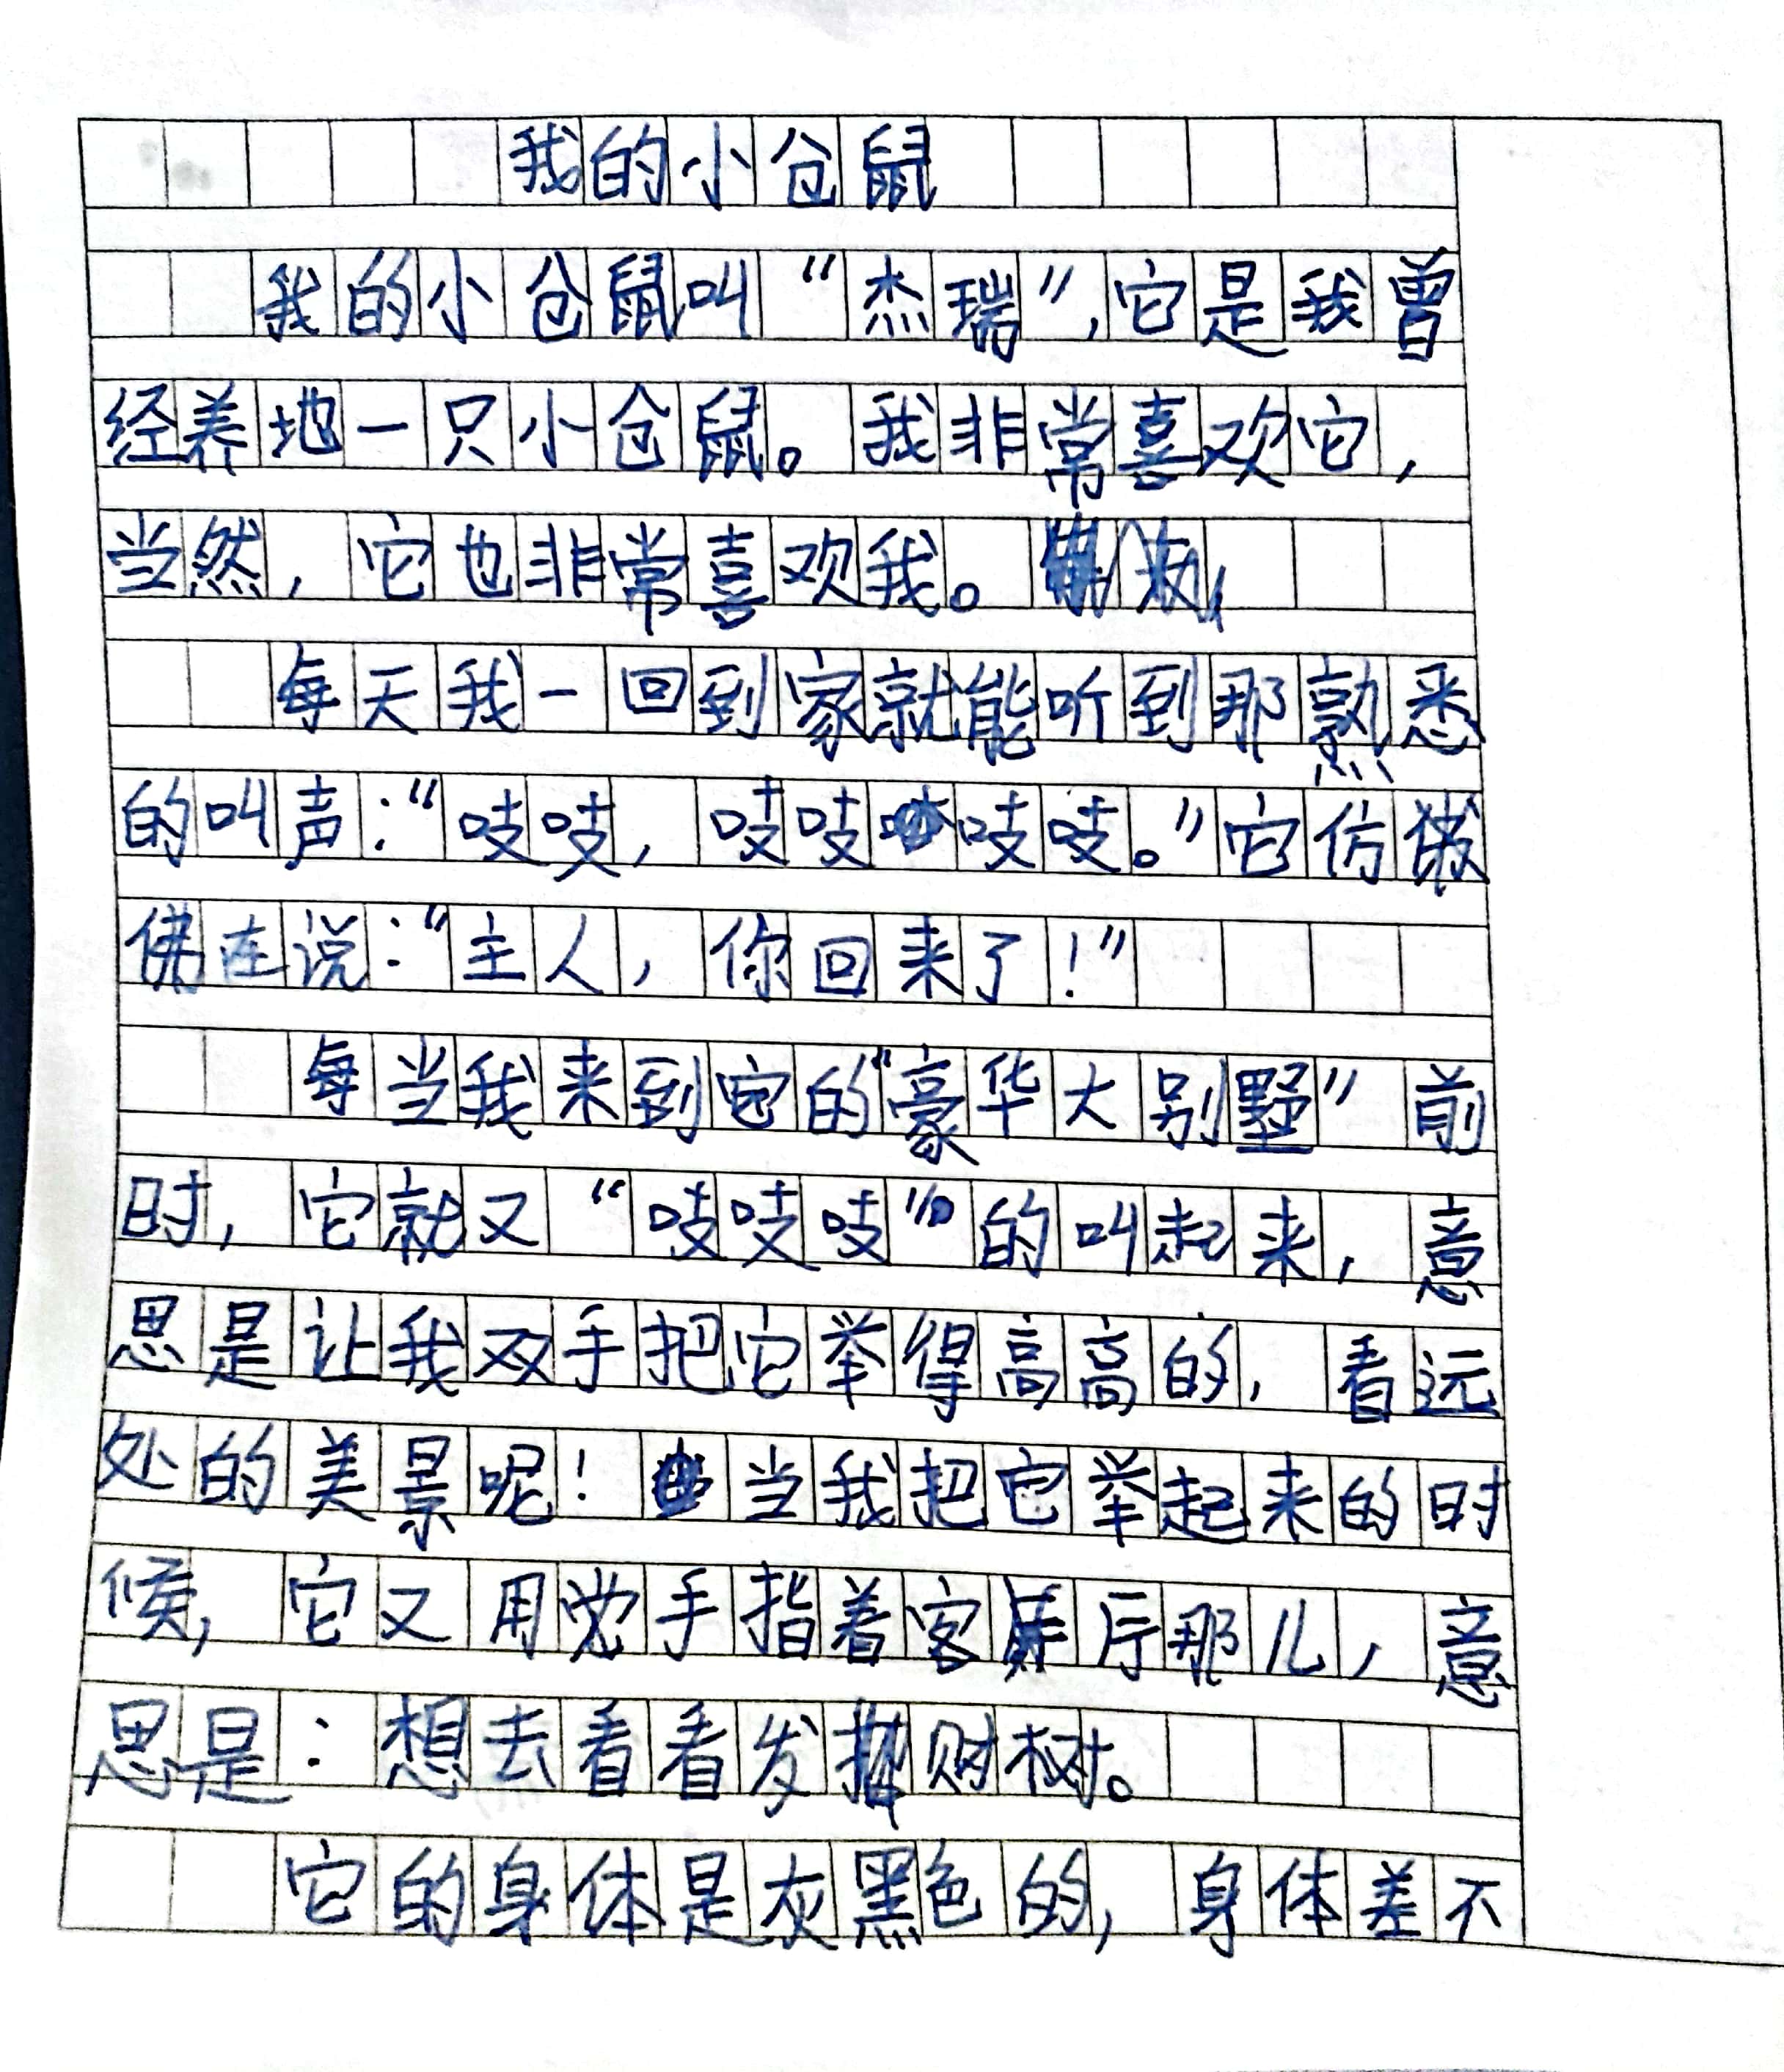 我的小仓鼠
我的小仓鼠叫“杰瑞”,它是我曾
经养地一只小仓鼠。我非常喜欢它,
当然,它也非常喜欢我。
每天我一回到家就能听到那熟悉
的叫声:“吱吱,吱吱吱吱。”它仿
佛在说:“主人,你回来了!”
每当我来到它的“豪华大别墅”前
时,它就又“吱吱吱”的叫起来,意
思是让我双手把它举得高高的,看远
处的美景呢!当我把它举起来的时
候,它又用手指着客厅那儿,意
思是:想去看看发财树。
它的身体是灰黑色的,身体差不